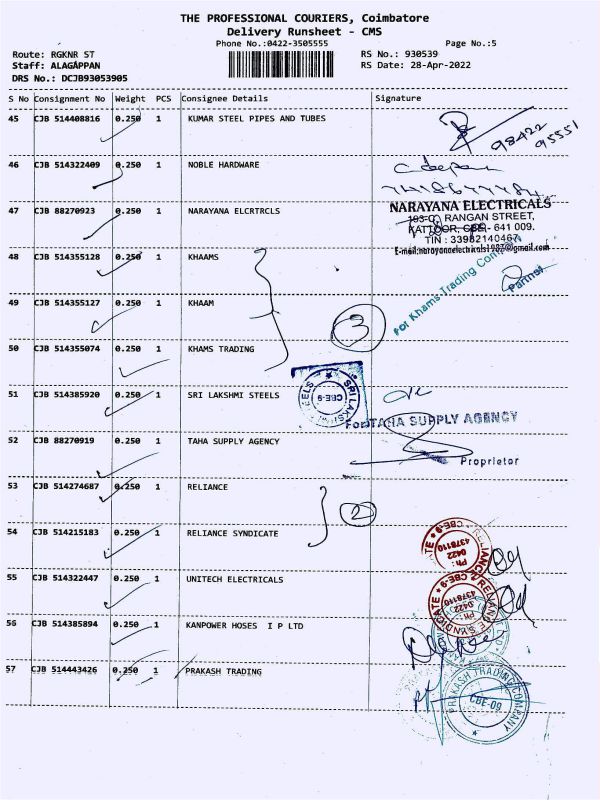 THE PROFESSIONAL COURIERS, Coimbatore
Delivery Runsheet - CMS
Phone No.:0422-3505555 Page No.:5
Route: RGKNR ST RS No.: 930539
Staff: ALAGAPPAN RS Date: 28-Apr-2022
DRS No.: DCJB93053905
S No Consignment No Weight PCS Consignee Details Signature
45 CJB 514408816 0.250 1 KUMAR STEEL PIPES AND TUBES
98422
95551
46 CJB 514322409 0.250 1 NOBLE HARDWARE
47 CJB 88270923 0.250 1 NARAYANA ELCRTRCLS
NARAYANA ELECTRICALS
103-C, RANGAN STREET,
KATTOOR, CBE - 641 009.
TIN : 33982140467
48 CJB 514355128 0.250 1 KHAAMS
For Khams Trading Company
Partner
49 CJB 514355127 0.250 1 KHAAM
3
50 CJB 514355074 0.250 1 KHAMS TRADING
51 CJB 514385920 0.250 1 SRI LAKSHMI STEELS
CBE-9
For TAHA SUPPLY AGENCY
52 CJB 88270919 0.250 1 TAHA SUPPLY AGENCY
Proprietor
53 CJB 514274687 0.250 1 RELIANCE
2
54 CJB 514215183 0.250 1 RELIANCE SYNDICATE
RELIANCE SYNDICATE
CBE-9
PH :
0422
4378110
55 CJB 514322447 0.250 1 UNITECH ELECTRICALS
RELIANCE SYNDICATE
CBE-9
PH :
0422
4378110
56 CJB 514385894 0.250 1 KANPOWER HOSES I P LTD
57 CJB 514443426 0.250 1 PRAKASH TRADING
PRAKASH TRADING COMPANY
CBE-09